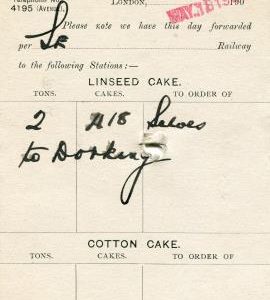 4195 (AVENUE).
LONDON, 190
MAY. 16 19
Please note we have this day forwarded
per SE Railway
to the following Stations:—
LINSEED CAKE.
TONS. CAKES. TO ORDER OF
2 Selves
to Dorking
COTTON CAKE.
TONS. CAKES. TO ORDER OF